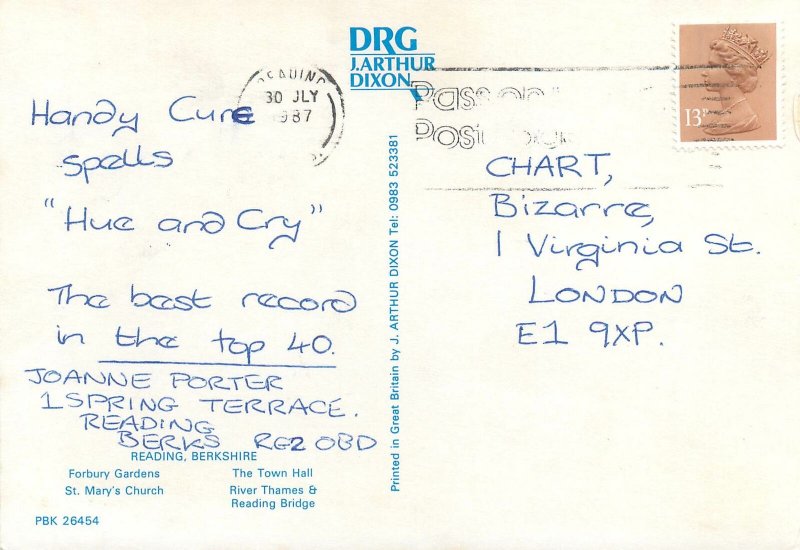 DRG
J.ARTHUR
DIXON
READING
30 JLY
1987
13P
Handy Cure
spells
"Hue and Cry"
The best record
in the top 40.
JOANNE PORTER
1 SPRING TERRACE.
READING
BERKS RG2 0BD
READING, BERKSHIRE
Forbury Gardens
The Town Hall
St. Mary's Church
River Thames &
Reading Bridge
PBK 26454
Printed in Great Britain by J. ARTHUR DIXON Tel: 0983 523381
CHART,
Bizarre,
1 Virginia St.
LONDON
E1 9XP.